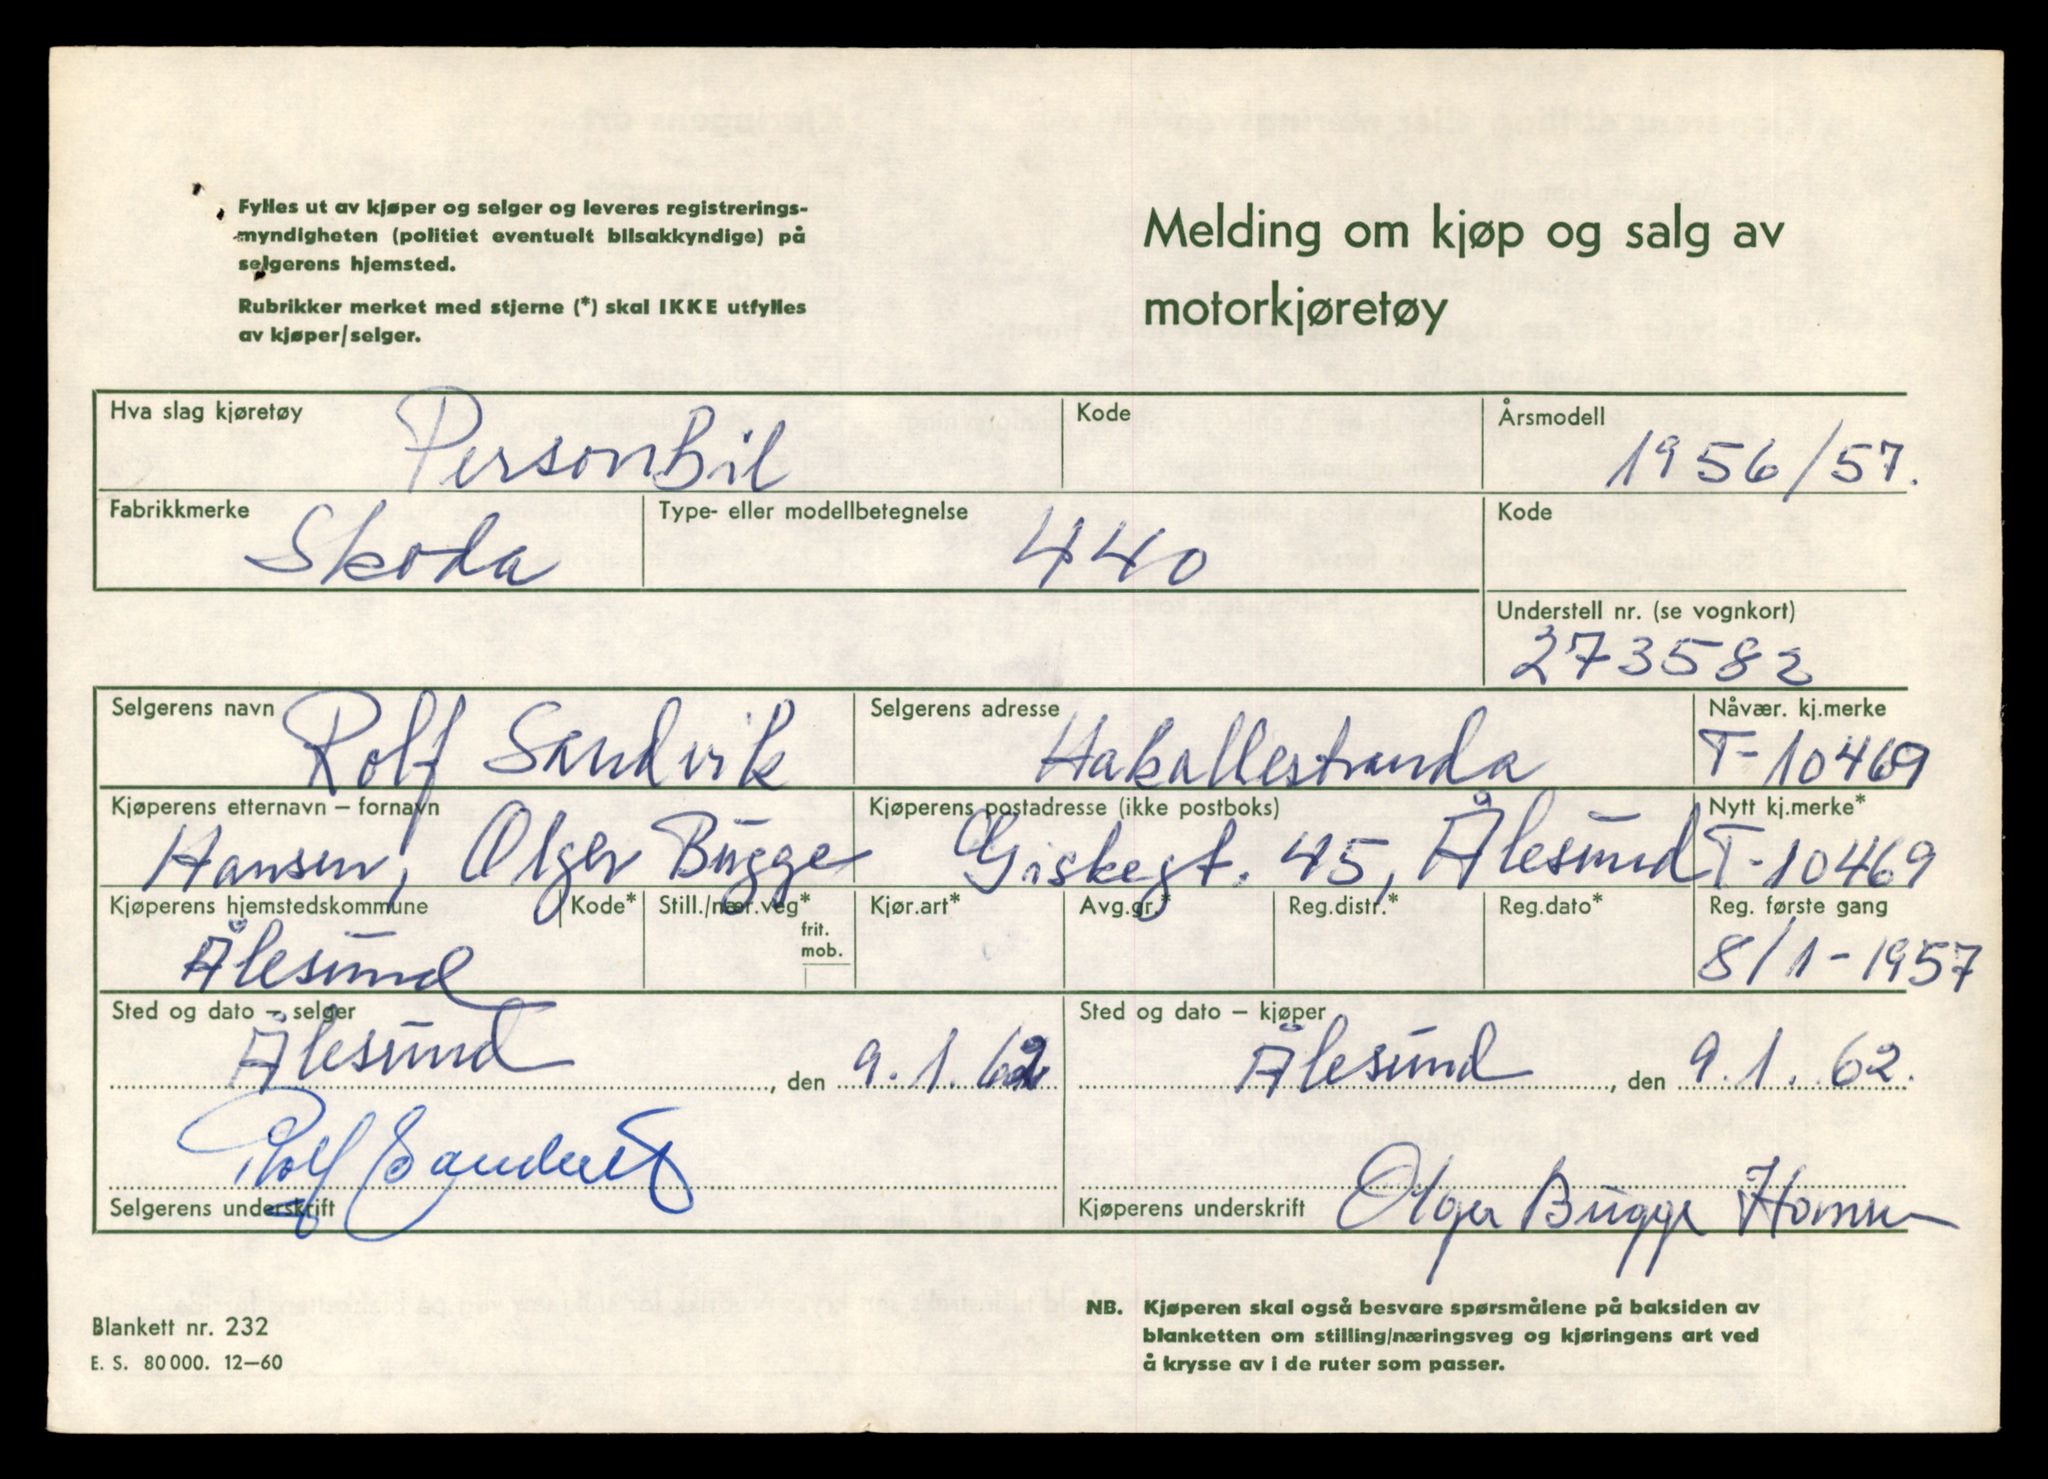 Fylles ut av kjøper og selger og leveres registrerings-
myndigheten (politiet eventuelt bilsakkyndige) på
selgerens hjemsted.
Rubrikker merket med stjerne (*) skal IKKE utfylles
av kjøper/selger.
Melding om kjøp og salg av
motorkjøretøy
Hva slag kjøretøy
PersonBil
Kode
Årsmodell
1956/57.
Fabrikkmerke
Skoda
Type- eller modellbetegnelse
440
Kode
Understell nr. (se vognkort)
273582
Selgerens navn
Rolf Sandvik
Selgerens adresse
Hakallestranda
Nåvær. kj.merke
T-10469
Kjøperens etternavn – fornavn
Hansen, Olger Bugge
Kjøperens postadresse (ikke postboks)
Giskegt. 45, Ålesund
Nytt kj.merke*
T-10469
Kjøperens hjemstedskommune
Ålesund
Kode*
Still./nær.veg*
frit.
mob.
Kjør.art*
Avg.gr.*
Reg.distr.*
Reg.dato*
Reg. første gang
8/1-1957
Sted og dato – selger
Ålesund, den 9.1.62
Sted og dato – kjøper
Ålesund, den 9.1.62.
Rolf Sandvik
Selgerens underskrift
Kjøperens underskrift
Olger Bugge Hansen
Blankett nr. 232
E. S. 80 000. 12–60
NB. Kjøperen skal også besvare spørsmålene på baksiden av
blanketten om stilling/næringsveg og kjøringens art ved
å krysse av i de ruter som passer.